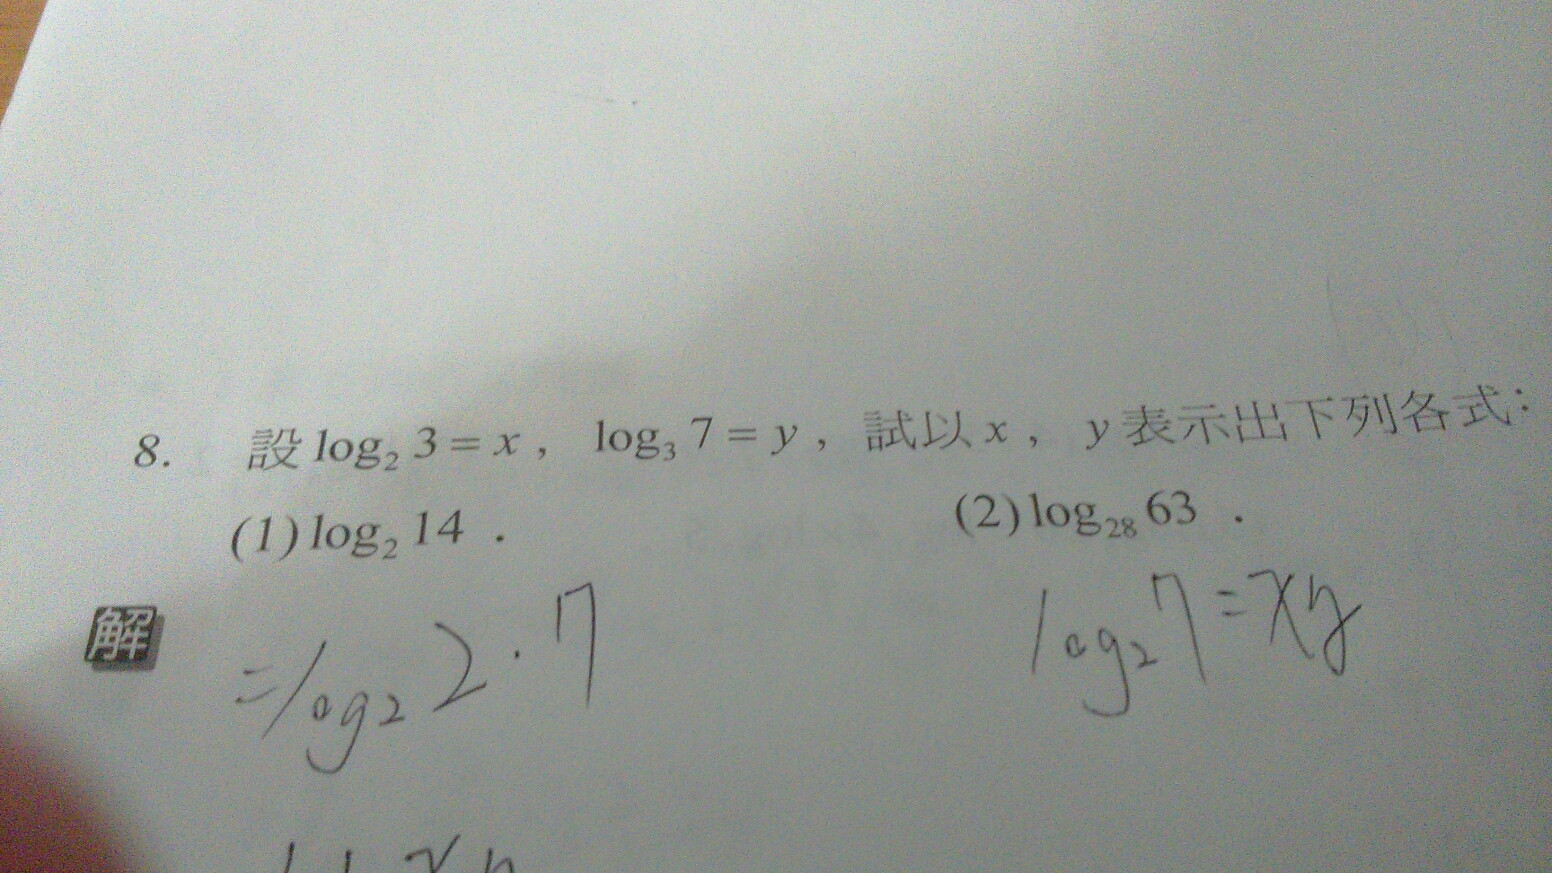 8. 設 log₂ 3 = x , log₃ 7 = y , 試以 x , y 表示出下列各式：
(1) log₂ 14 . (2) log₂₈ 63 .
解
= log₂ 2 · 7 log₂ 7 = xy